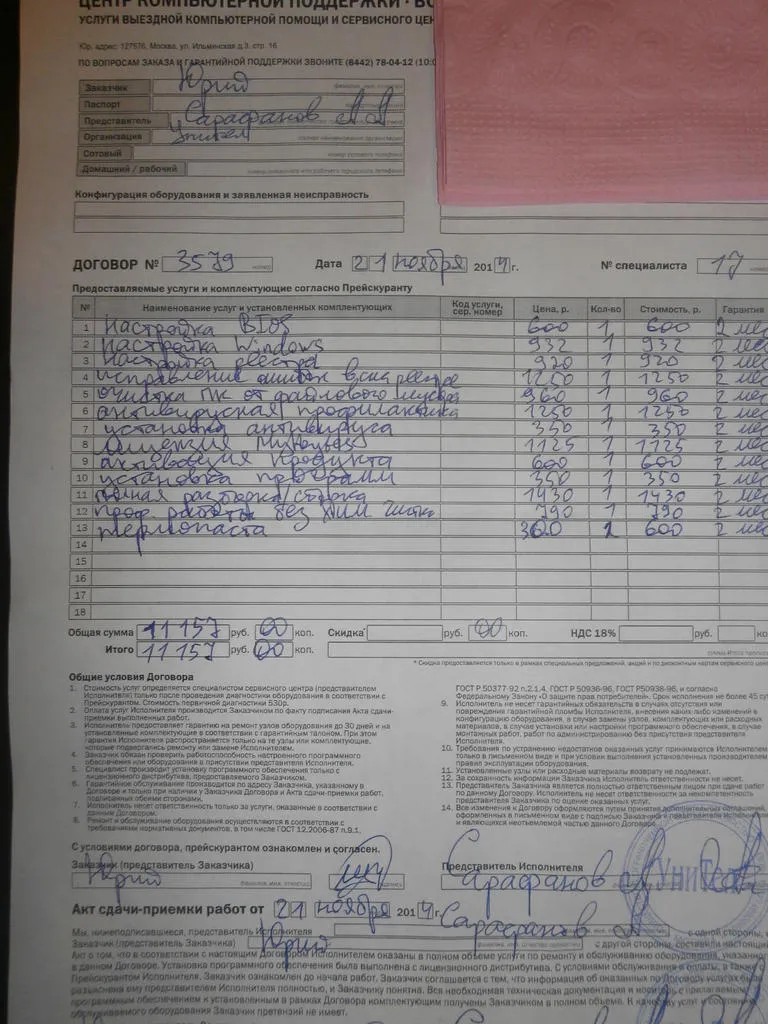 ЦЕНТР КОМПЬЮТЕРНОЙ ПОДДЕРЖКИ · ВО
УСЛУГИ ВЫЕЗДНОЙ КОМПЬЮТЕРНОЙ ПОМОЩИ И СЕРВИСНОГО ЦЕН
Юр. адрес: 127576, Москва, ул. Ильминская д.3, стр. 16
ПО ВОПРОСАМ ЗАКАЗА И ГАРАНТИЙНОЙ ПОДДЕРЖКИ ЗВОНИТЕ (8442) 78-04-12 (10:0
Заказчик Юрий
Паспорт
Представитель Сарафанов А А
Организация Унител
Сотовый номер сотового телефона
Домашний / рабочий номер домашнего или рабочего городского телефона
Конфигурация оборудования и заявленная неисправность
ДОГОВОР № 3579 Дата 21 ноября 2014 г. № специалиста 17
Предоставляемые услуги и комплектующие согласно Прейскуранту
№ Наименование услуг и установленных комплектующих Код услуги, сер. номер Цена, р. Кол-во Стоимость, р. Гарантия
1 Настройка BIOS 600 1 600 2 мес
2 Настройка Windows 932 1 932 2 мес
3 Настройка реестра 920 1 920 2 мес
4 исправление ошибок в сис реестре 1250 1 1250 2 мес
5 очистка ПК от файлового мусора 960 1 960 2 мес
6 антивирусная профилактика 1250 1 1250 2 мес
7 установка антивируса 350 1 350 2 мес
8 Лицензия 1125 1 1125 2 мес
9 активация продукта 600 1 600 2 мес
10 установка программ 350 1 350 2 мес
11 полная разборка/сборка 1430 1 1430 2 мес
12 проф. работы без хим чистки 790 1 790 2 мес
13 термопаста 600 2 мес
14
15
16
17
18
Общая сумма 11157 руб. 00 коп. Скидка* руб. 00 коп. НДС 18% руб. ко
Итого 11157 руб. 00 коп.
* Скидка предоставляется только в рамках специальных предложений, акций и по дисконтным картам сервисного цент
Общие условия Договора
1. Стоимость услуг определяется специалистом сервисного центра (представителем Исполнителя) только после проведения диагностики оборудования в соответствии с Прейскурантом. Стоимость первичной диагностики 530р.
2. Оплата услуг Исполнителя производится Заказчиком по факту подписания Акта сдачи-приемки выполненных работ.
3. Исполнитель предоставляет гарантию на ремонт узлов оборудования до 30 дней и на установленные комплектующие в соответствии с гарантийным талоном. При этом гарантия Исполнителя распространяется только на те узлы или комплектующие, которые подвергались ремонту или замене Исполнителем.
4. Заказчик обязан проверить работоспособность настроенного программного обеспечения или оборудования в присутствии представителя Исполнителя.
5. Специалист производит установку программного обеспечения только с лицензионного дистрибутива, предоставляемого Заказчиком.
6. Гарантийное обслуживание производится по адресу Заказчика, указанному в Договоре и только при наличии у Заказчика Договора и Акта сдачи-приемки работ, подписанных обеими сторонами.
7. Исполнитель несет ответственность только за услуги, оказанные в соответствии с данным Договором.
8. Ремонт и обслуживание оборудования осуществляются в соответствии с требованиями нормативных документов, в том числе ГОСТ 12.2006-87 п.9.1,
ГОСТ Р 50377-92 п.2.1.4, ГОСТ Р 50936-96, ГОСТ Р50938-96, и согласно Федеральному Закону «О защите прав потребителей». Срок исполнения не более 45 сут
9. Исполнитель не несет гарантийных обязательств в случаях отсутствия или повреждения гарантийной пломбы Исполнителя, внесения каких-либо изменений в конфигурацию оборудования, в случае замены узлов, комплектующих или расходных материалов, в случае установки или настройки программного обеспечения, в случае монтажных работ, работ по администрированию без присутствия представителя Исполнителя.
10. Требования по устранению недостатков оказанных услуг принимаются Исполнителем только в письменном виде и при условии выполнения установленных производителем правил эксплуатации оборудования.
11. Установленные узлы или расходные материалы возврату не подлежат.
12. За сохранность информации Заказчика Исполнитель ответственности не несет.
13. Представитель Заказчика является полностью ответственным лицом при сдаче работ по данному Договору. Исполнитель не несет ответственности за некомпетентность представителя Заказчика по оценке оказанных услуг.
14. Все изменения к Договору оформляются путем принятия дополнительных соглашений, оформленных в письменном виде с подписью Заказчика и представителя Исполнителя и являющихся неотъемлемой частью данного Договора
С условиями договора, прейскурантом ознакомлен и согласен.
Заказчик (представитель Заказчика) Представитель Исполнителя
Юрий Сарафанов А
Унител
Акт сдачи-приемки работ от 21 ноября 2014 г. Сарафанов А
Мы, нижеподписавшиеся, представитель Исполнителя с одной стороны, и
Заказчик (представитель Заказчика) Юрий с другой стороны, составили настоящий
Акт о том, что в соответствии с настоящим Договором Исполнителем оказаны в полном объеме услуги по ремонту и обслуживанию оборудования, указанно
в данном Договоре. Установка программного обеспечения была выполнена с лицензионного дистрибутива. С условиями обслуживания и оплаты, а также
Прейскурантом Исполнителя, Заказчик ознакомлен до начала работ. Заказчик соглашается с тем, что информация об оказанных по Договору услугах была
разъяснена ему представителем Исполнителя полностью, и Заказчику понятна. Вся необходимая техническая документация и носители с прилагаемым
программным обеспечением к установленным в рамках Договора комплектующим получены Заказчиком в полном объеме. К качеству услуг и состоянию
обслуживаемого оборудования Заказчик претензий не имеет.